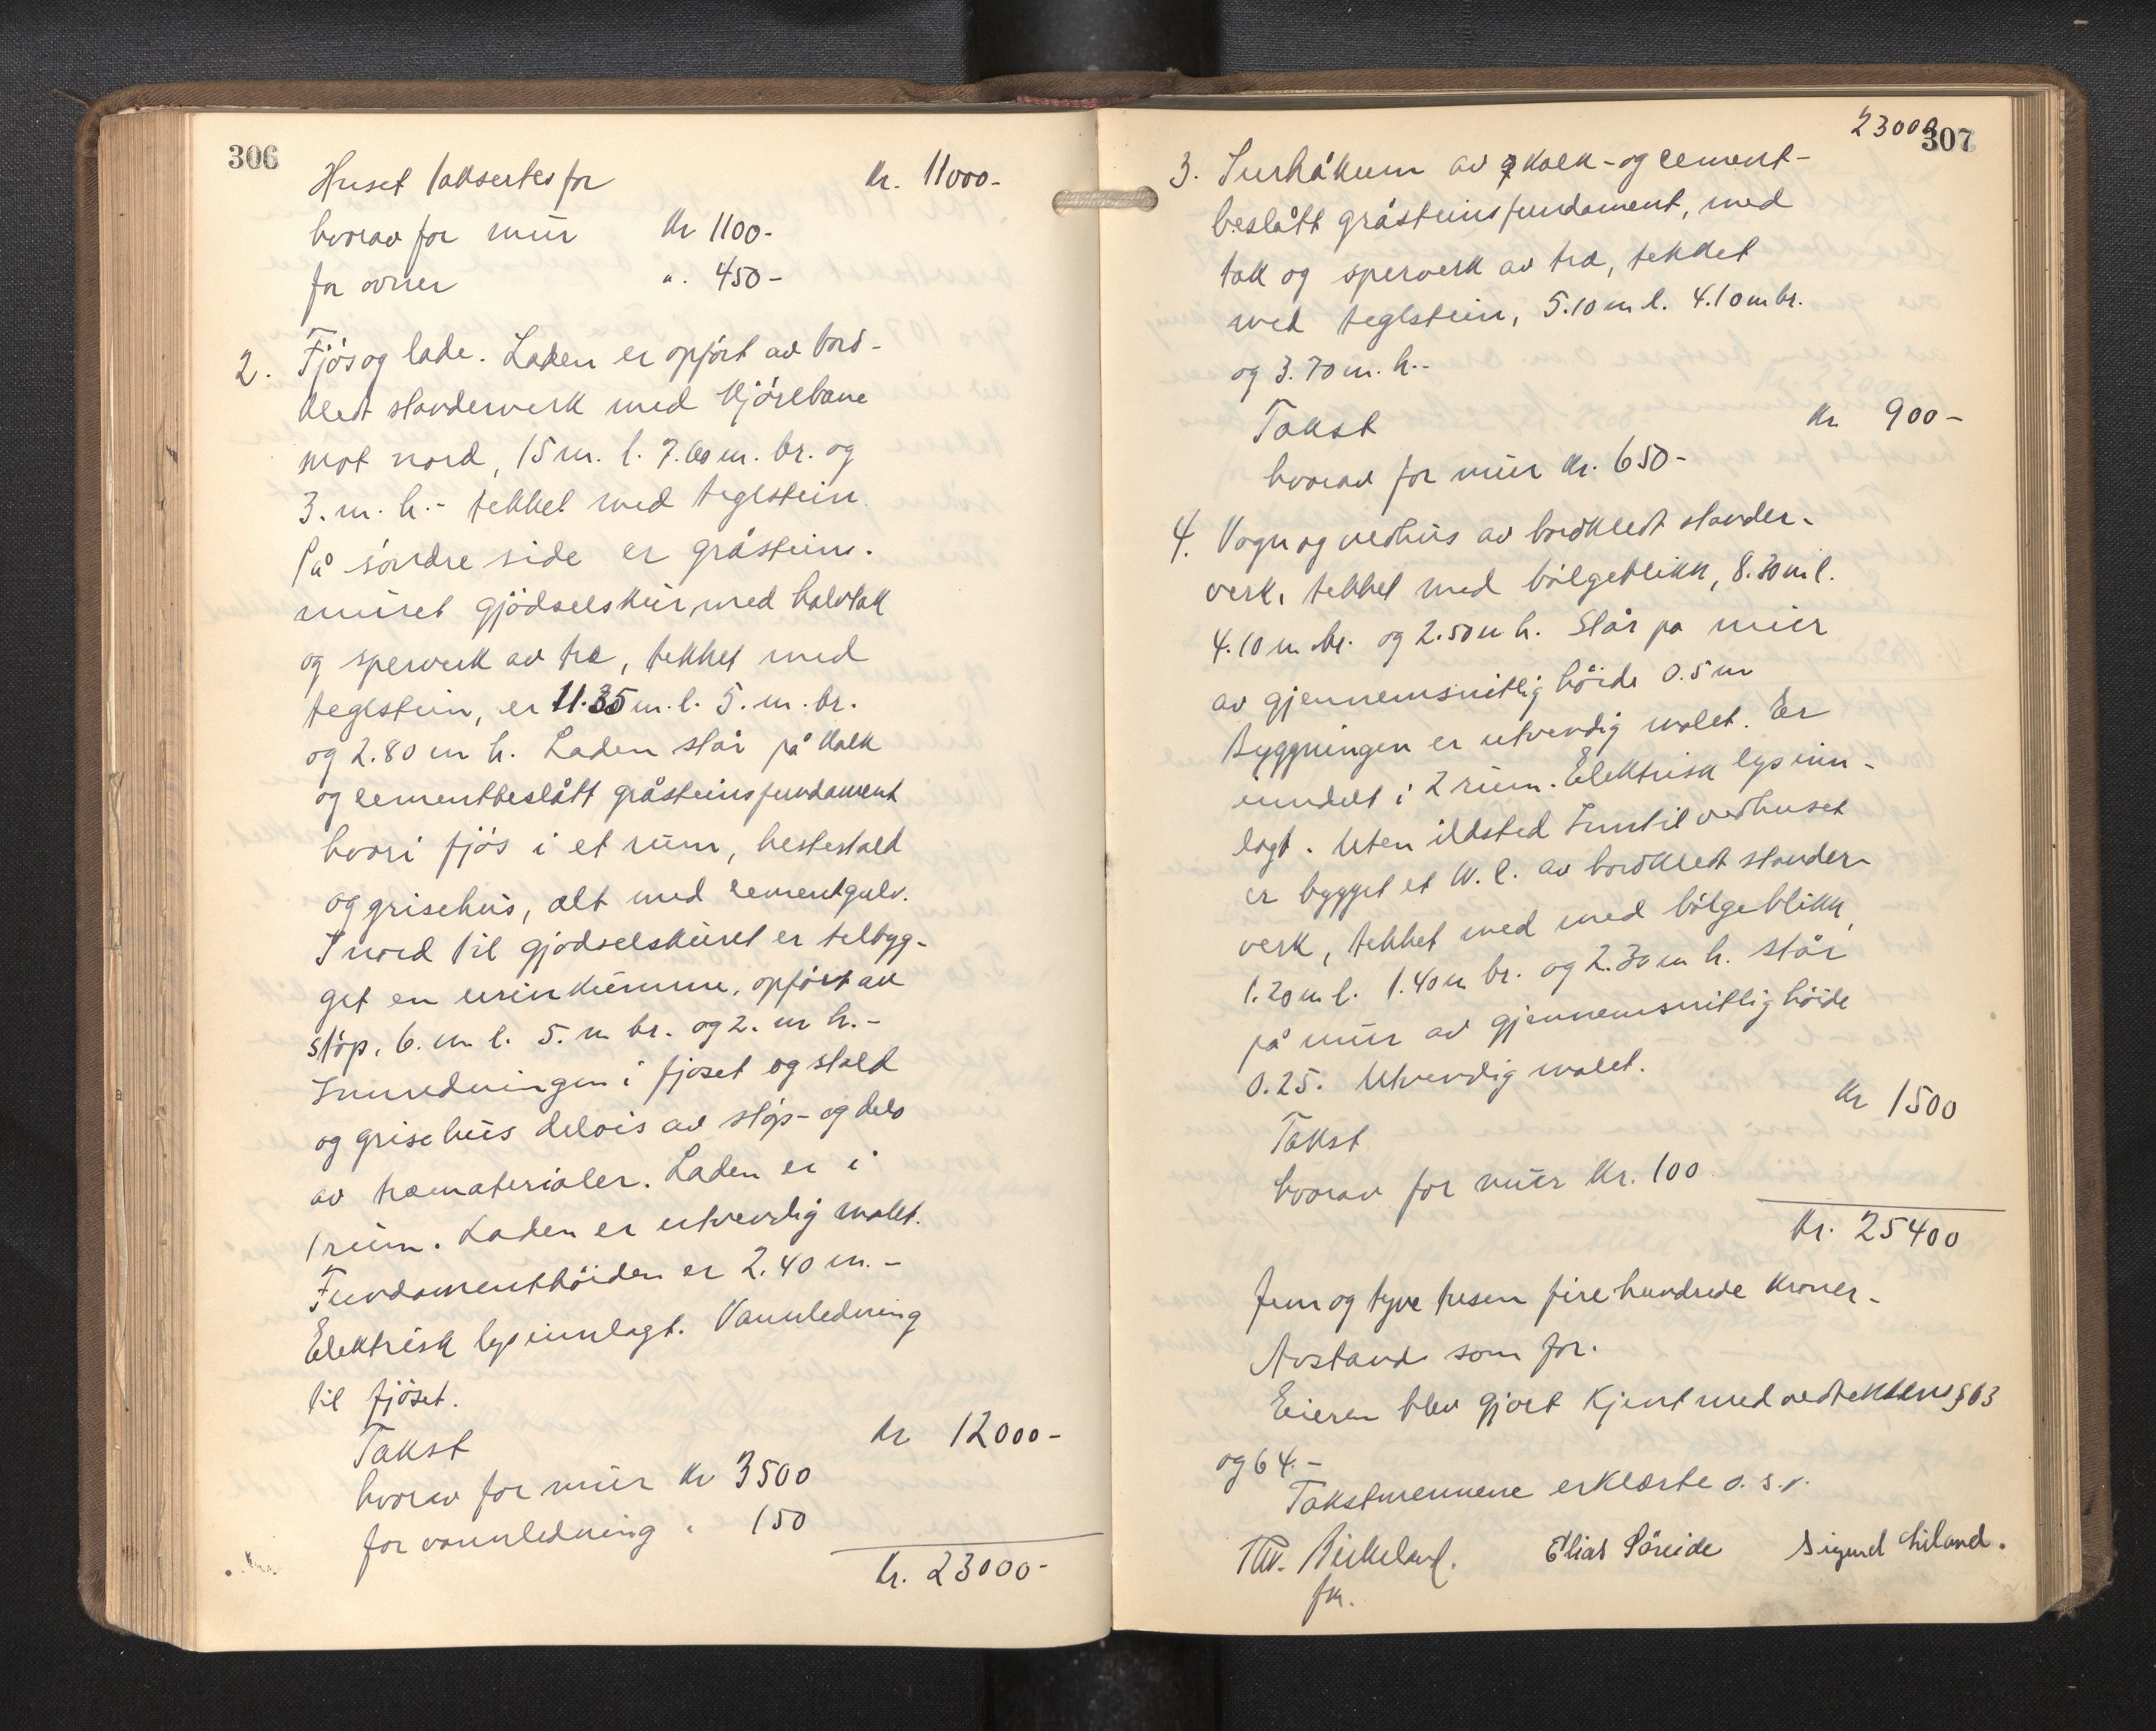 306
Huset taksertes for Kr. 11000-
hvorav for mur Kr 1100-
for ovner " 450-
2. Fjös og lade. Laden er opfört av bord-
kledt standerverk med kjörebane
mot nord, 15 m. l. 7.60 m. br. og
3. m. h.- tekket med teglstein.
På söndre side er gråsteins-
muret gjödselskur, med halvtak
og sperverk av træ, tekket med
teglstein, er 11.35 m. l. 5. m. br.
og 2.80 m h. Laden står på kalk
og cementbeslått gråsteinsfundament
hvori fjös i et rum, hestestald
og grisehus, alt med cementgulv.
I nord til gjödselskuret er tilbyg-
get en urinkumme, opfört av
stöp, 6. m l. 5. m br. og 2. m h.-
Innredningen i fjöset og stald
og grisehus delvis av stöp- og delv
av træmaterialer. Laden er i
1 rum. Laden er utvendig malet.
Fundamenthöiden er 2.40 m.-
Elektrisk lys innlagt. Vannledning
til fjöset.
Takst Kr 12000-
hvorav for mur Kr 3500
for vannledning " 150
Kr. 23000-
23000
307
3. Surhåkum av kalk- og cement-
beslått gråsteinsfundament, med
tak og sperverk av træ, tekket
med teglstein, 5.10 m l. 4.10 m br.
og 3.70 m. h.-
Takst Kr 900-
hvorav for mur Kr. 650-
4. Vogn og vedhus av bordkledt stander-
verk, tekket med bölgeblikk, 8.30 m l.
4.10 m br. og 2.50 m h. Står på mur
av gjennemsnitlig höide 0.5 m
Byggningen er utvendig malet. Er
inndelt i 2 rum. Elektrisk lys inn-
lagt. Uten ildsted Inntil vedhuset
er bygget et W.C. av bordkledt stander-
verk, tekket med med bölgeblikk,
1.20 m l. 1.40 m br. og 2.30 m h. står
på mur av gjennemsnitlig höide
0.25. Utvendig malet.
Takst Kr 1500
hvorav for mur Kr. 100
Kr. 25400
Fem og tyve tusen fire hundrede kroner-
Avstand som för.
Eieren blev gjort kjent med vedtektens § 63
og 64.-
Takstmennene erklærte o. s. v.
Birkeland. Elias Söreide Sigurd Liland.
fm.